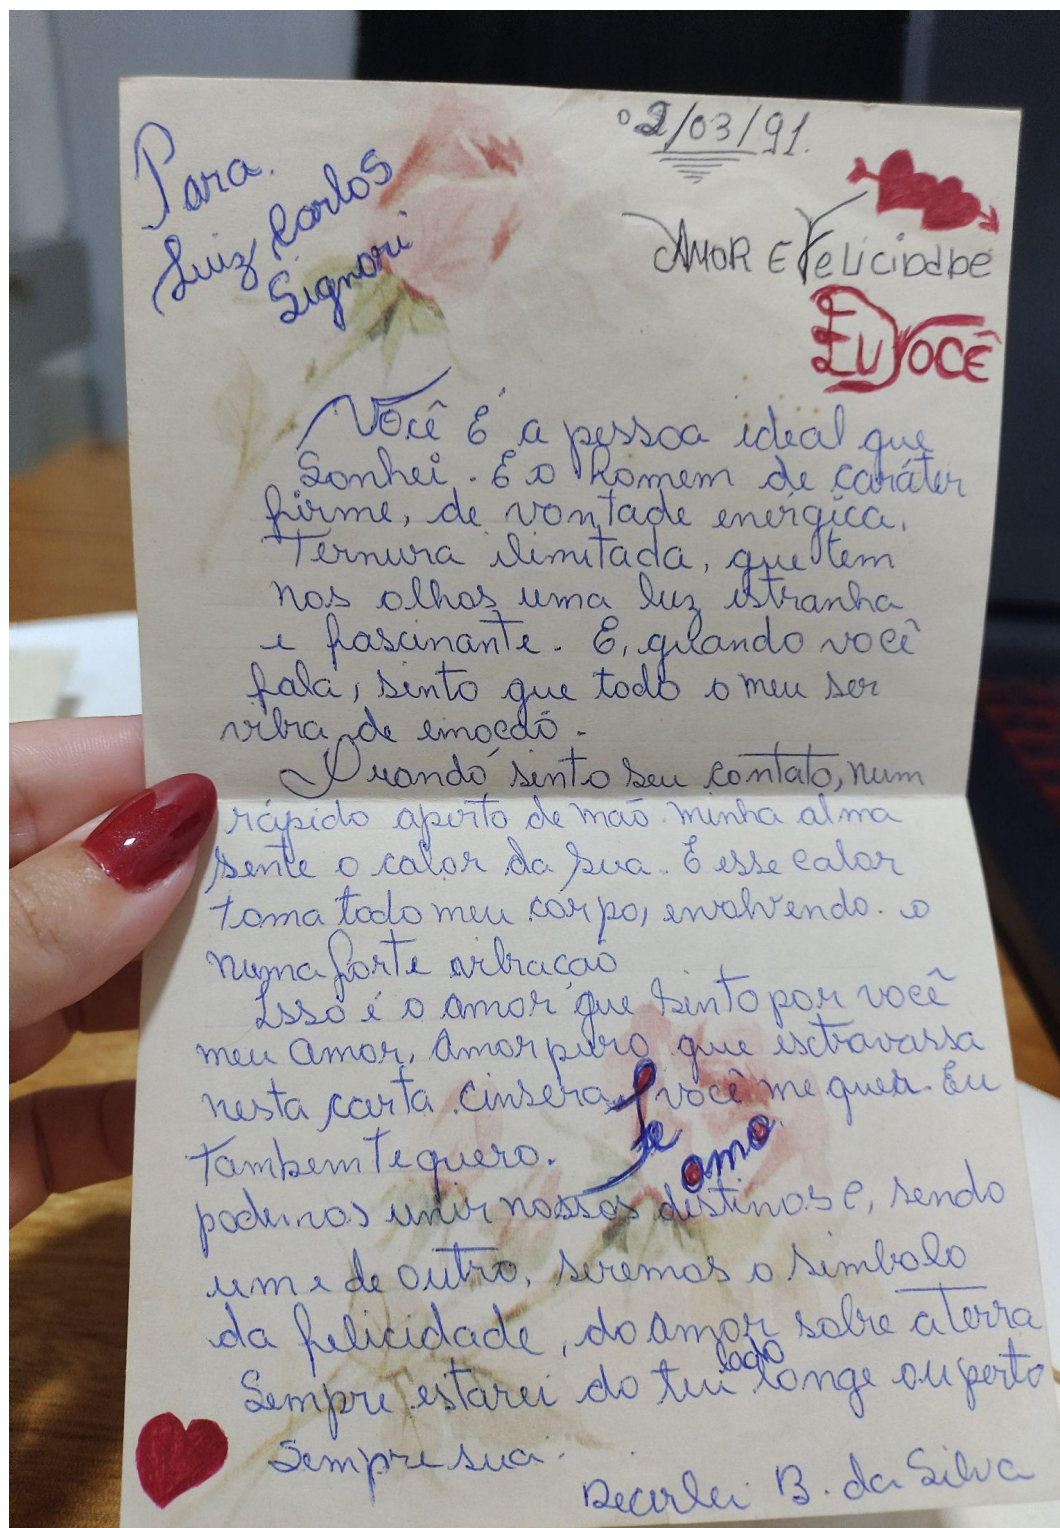 Para.
Luiz Carlos
Signori
02/03/91.
AMOR E FELICIDADE
EU VOCÊ
Você É a pessoa ideal que
Sonhei. É o homem de caráter
firme, de vontade enérgica.
Ternura ilimitada, que tem
nos olhos uma luz estranha
e fascinante. E, quando você
fala, sinto que todo o meu ser
vibra de emoção.
Quando sinto seu contato, num
rápido aperto de mão. minha alma
sente o calor da sua. E esse calor
toma todo meu corpo, envolvendo-o
numa forte vibração
Isso é o amor que sinto por você
meu amor, Amor puro que estravassa
nesta carta cinsera, você me quer. Eu
Tambem te quero.
Te amo
podemos unir nossos destinos e, sendo
um e de outro, seremos o simbolo
da felicidade, do amor sobre a terra
Sempre estarei do teu lado longe ou perto
Sempre sua.
B. da Silva